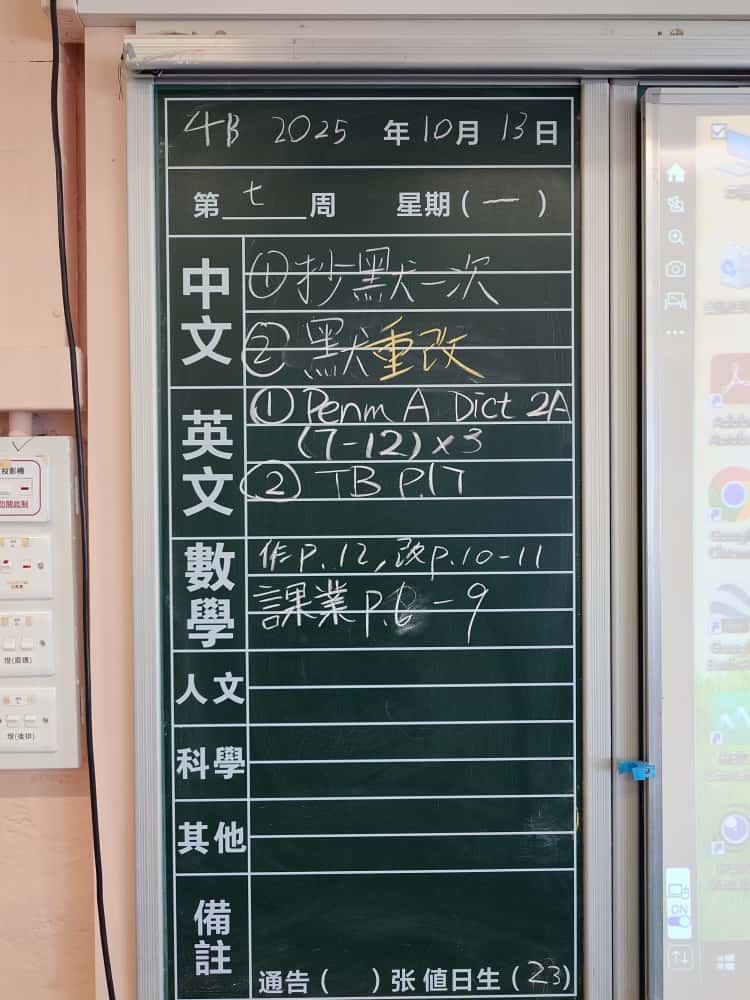 4B 2025 年 10 月 13 日
第 七 周 星期 ( 一 )
中文
① 抄默一次
② 默重改
英文
① Penm A Dict 2A
(7-12) x 3
② TB P.17
數學
作 P. 12, 改 p. 10-11
課業 p. 6 - 9
人文
科學
其他
備註
通告 ( ) 张 值日生 ( 23 )
投影機
勿關此制
ON